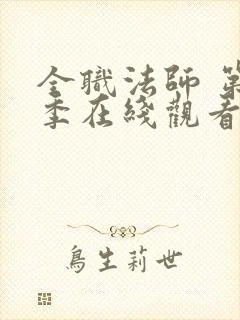 全職法師 第
季在綫觀看
鳥生莉世